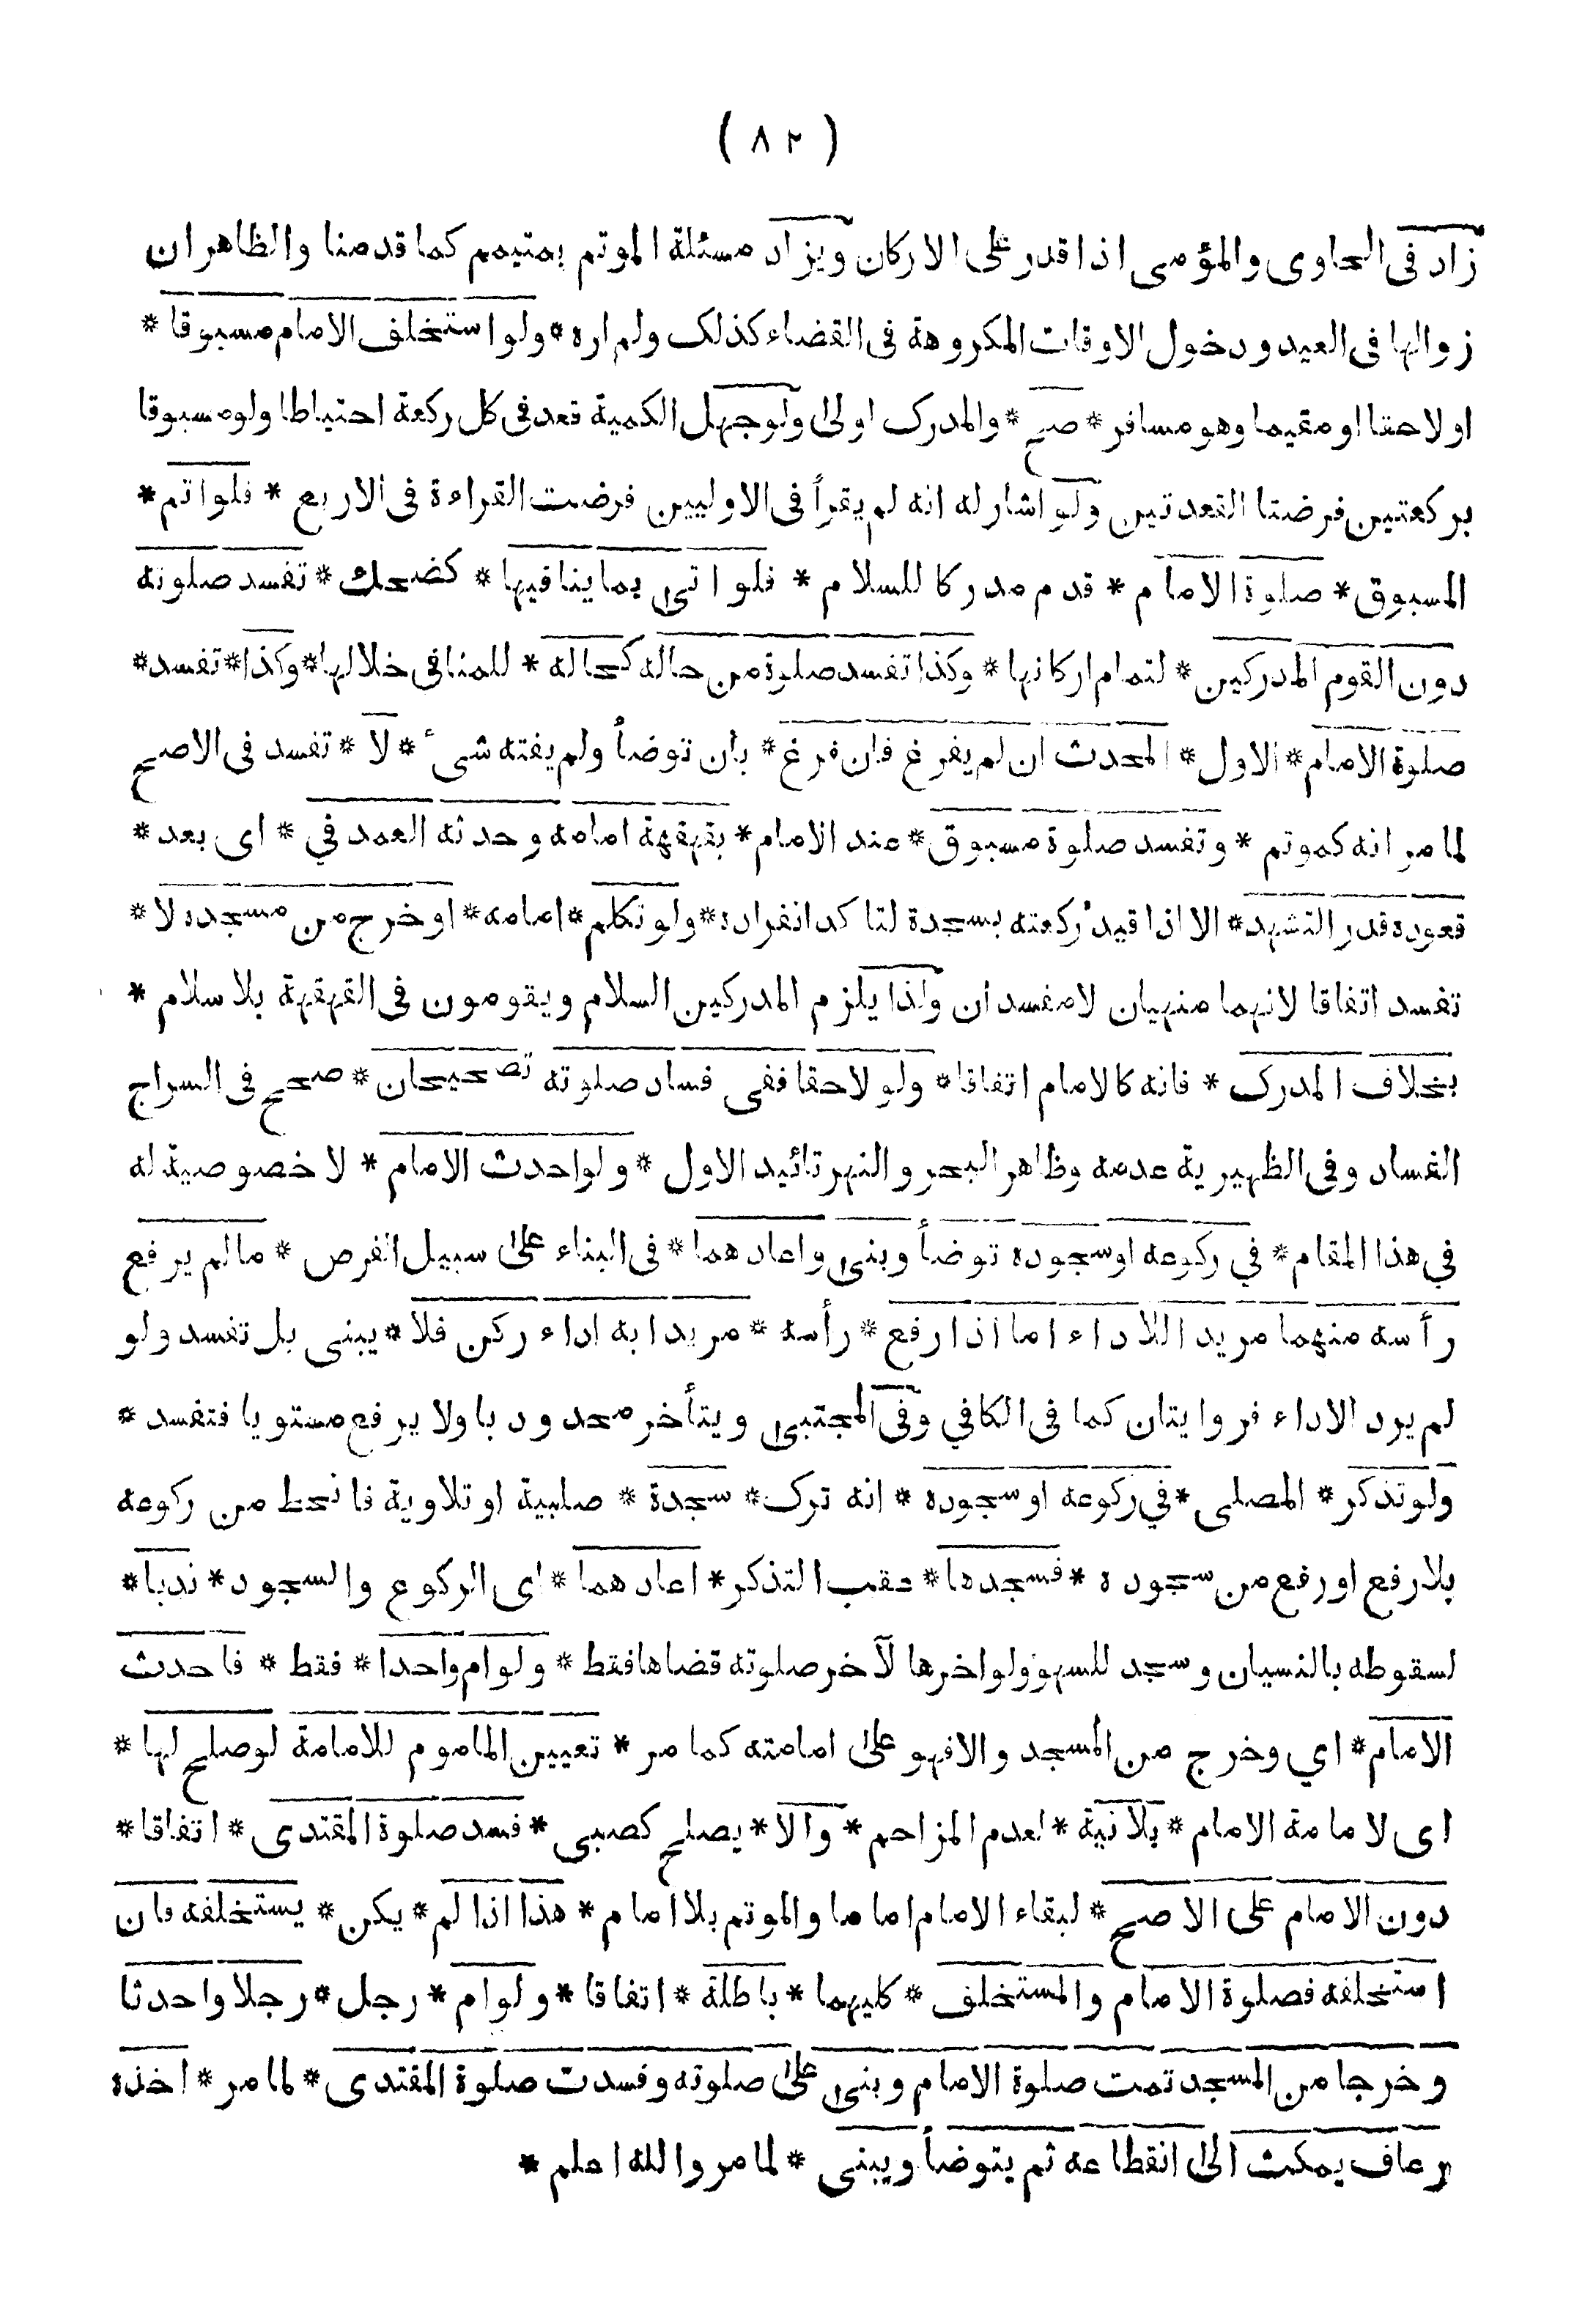 ( ٨٢ )
زاد فى الحاوى والمؤمى اذا قدر على الاركان ويزاد مسئلة الموتم بمتيمم كما قدمنا والظاهر ان
زوالها فى العيد ودخول الاوقات المكروهة فى القضاء كذلك ولم اره * ولو استخلف الامام مسبوقا *
او لاحقا او مقيما وهو مسافر * صح * والمدرك اولى ولو جهل الكمية قعد فى كل ركعة احتياطا ولو مسبوقا
بركعتين فرضتا القعدتين ولو اشار له انه لم يقرأ فى الاوليين فرضت القراءة فى الاربع * فلو اتم *
المسبوق * صلوة الامام * قدم مدركا للسلام * فلو اتى بما ينافيها * كضحك * تفسد صلوته
دون القوم المدركين * لتمام اركانها * وكذا تفسد صلوة من حاله كحاله * للمنافى خلالها * وكذا * تفسد *
صلوة الامام * الاول * المحدث ان لم يفرغ فان فرغ * بان توضأ ولم يفته شىء * لا * تفسد فى الاصح
لما مر انه كموتم * وتفسد صلوة مسبوق * عند الامام * بقهقهة امامه وحدثه العمد في * اى بعد *
قعوده قدر التشهد * الا اذا قيد ركعته بسجدة لتاكد انفراده * ولو تكلم * امامه * او خرج من مسجده لا *
تفسد اتفاقا لانهما منهيان لا مفسدان ولذا يلزم المدركين السلام ويقومون فى القهقهة بلا سلام *
بخلاف المدرك * فانه كالامام اتفاقا * ولو لاحقا ففى فساد صلوته تصحيحان * صحح فى السراج
الفساد وفى الظهيرية عدمه وظاهر البحر والنهر تائيد الاول * ولو احدث الامام * لا خصوصية له
في هذا المقام * في ركوعه او سجوده توضأ وبنى واعادهما * فى البناء على سبيل الفرض * ما لم يرفع
رأسه منهما مريدا للاداء اما اذا رفع * رأسه * مريدا به اداء ركن فلا * يبنى بل تفسد ولو
لم يرد الاداء فروايتان كما فى الكافي وفى المجتبى ويتأخر محدودبا ولا يرفع مستويا فتفسد *
ولو تذكر * المصلى * في ركوعه او سجوده * انه ترك * سجدة * صلبية او تلاوية فانحط من ركوعه
بلا رفع او رفع من سجوده * فسجدها * عقب التذكر * اعادهما * اى الركوع والسجود * ندبا *
لسقوطه بالنسيان وسجد للسهو ولو اخرها لآخر صلوته قضاها فقط * ولو ام واحدا * فقط * فاحدث
الامام * اي وخرج من المسجد والا فهو على امامته كما مر * تعيين الماموم للامامة لو صلح لها *
اى لامامة الامام * بلا نية * لعدم المزاحم * والا * يصلح كصبى * فسد صلوة المقتدى * اتفاقا *
دون الامام على الاصح * لبقاء الامام اماما والموتم بلا امام * هذا اذا لم * يكن * يستخلفه فان
استخلفه فصلوة الامام والمستخلف * كليهما * باطلة * اتفاقا * ولو ام * رجل * رجلا واحدثا
وخرجا من المسجد تمت صلوة الامام وبنى على صلوته وفسدت صلوة المقتدى * لما مر * اخذه
رعاف يمكث الى انقطاعه ثم يتوضأ ويبنى * لما مر والله اعلم *